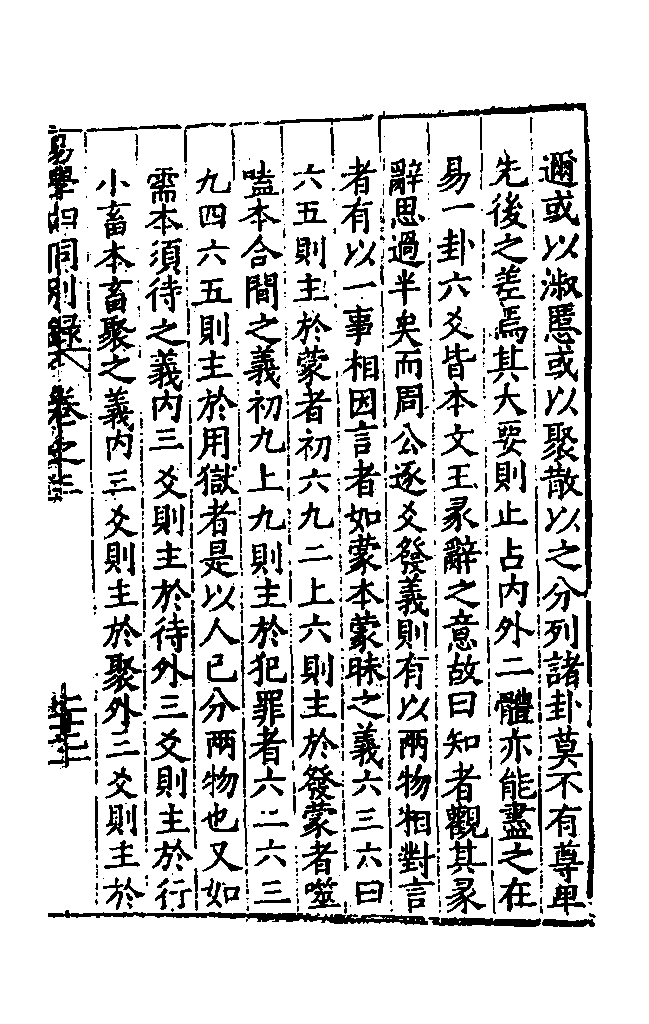 邇或以淑慝或以聚散以之分列諸卦莫不有尊卑
先後之差焉其大要則止占内外二體亦能盡之在
易一卦六爻皆本文王彖辭之意故曰知者觀其彖
辭思過半矣而周公逐爻發義則有以兩物相對言
者有以一事相因言者如蒙本蒙昧之義六三六曰
六五則主於蒙者初六九二上六則主於發蒙者噬
嗑本合間之義初九上九則主於犯罪者六二六三
九四六五則主於用獄者是以人己分兩物也又如
需本須待之義内三爻則主於待外三爻則主於行
小畜本畜聚之義内三爻則主於聚外三爻則主於
易學四同別錄 卷之三